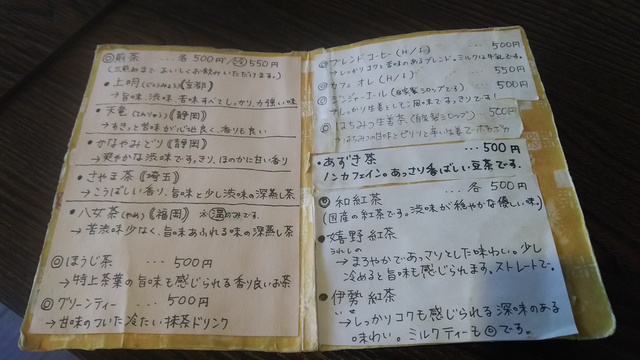 ◎煎茶 ... 各 500円/ 550円
(三煎めまで、おいしくお飲みいただけます。)
・上明 《京都》
→旨味、渋味、苦味すべてしっかり、力強い味
・天竜 (てんりゅう)《静岡》
→すきっと苦味が心地良く、香りも良い
・かなやみどり《静岡》
→爽やかな渋味ですっきり、ほのかに甘い香り
・さやま茶《埼玉》
→こうばしい香り、旨味と少し渋味の深蒸し茶
・八女茶(やめ)《福岡》 ※温のみです。
→苦渋味少なく、旨味あふれる味の深蒸し茶
◎ほうじ茶 ... 500円
→特上茶葉の旨味も感じられる香り良いお茶
◎グリーンティー ... 500円
→甘味のついた冷たい抹茶ドリンク
◎ブレンドコーヒー(H/I) ... 500円
→しっかりコクと苦味のあるブレンド。ミルクは牛乳です。
◎カフェオレ(H/I) ... 550円
◎ジンジャーエール(自家製シロップです) 500円
→しっかり生姜としそ風味です。すっきりです!
◎はちみつ生姜茶(自家製シロップ) 500円
→はちみつの甘味とピリッと辛い生姜でポカポカ
・あずき茶 ... 500円
ノンカフェイン。あっさり香ばしい豆茶です。
◎和紅茶 ... 各 500円
(国産の紅茶です。渋味が穏やかな優しい味。)
・嬉野 紅茶
うれしの
→まろやかであっさりとした味わい。少し
冷めると旨味も感じられます。ストレートで。
・伊勢 紅茶
→しっかりコクも感じられる深味のある
味わい。ミルクティーも◎です。